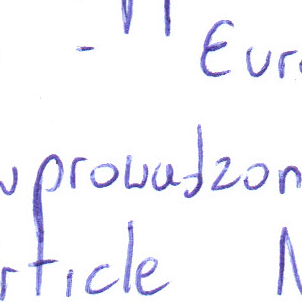 - Eur
wprowadzon
rticle N